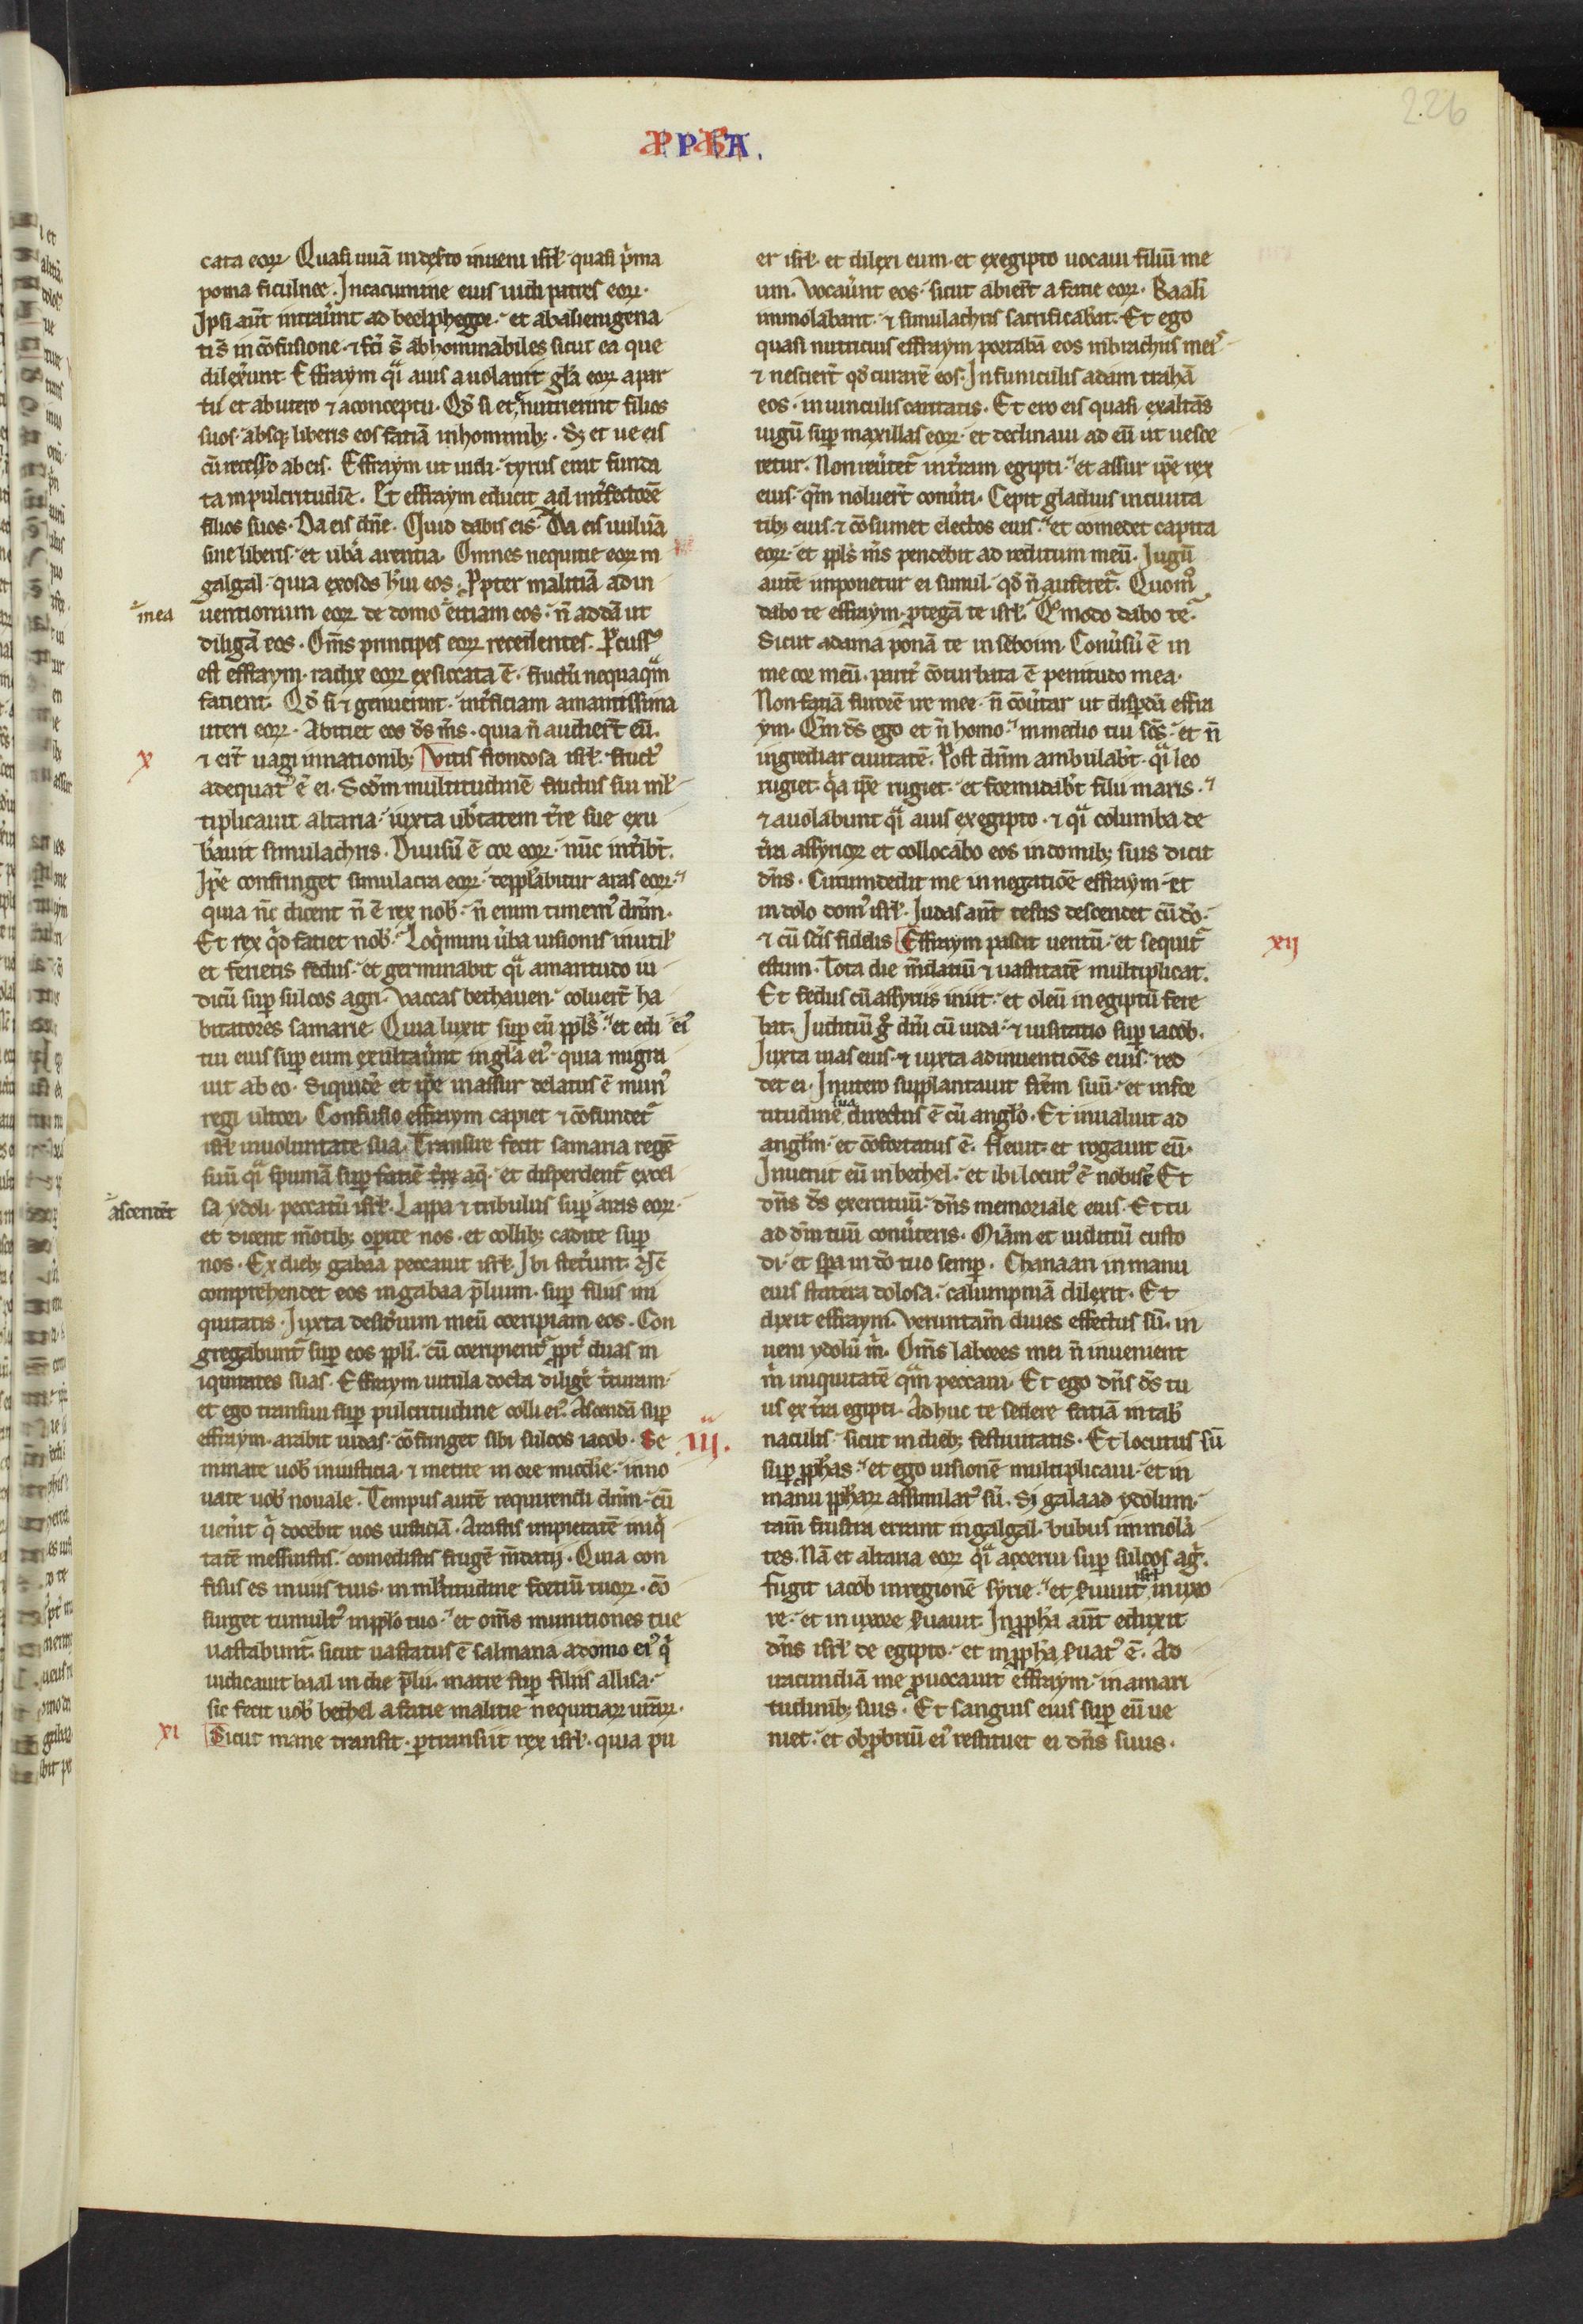 226
PPHA.
cata eoꝝ. Quasi uuā in deserto inueni isrl̄. quasi p̄ma
poma ficulnee. In cacumine eius uidi patres eoꝝ.
Ipsi aūt intrauer̄t ad beelphegor. et abalienigena
ti s̄ in cōfusione. ⁊ fc̄i s̄ abhominabiles sicut ea que
dilexerunt. Effraym qͣi auis auolauit gl̄a eoꝝ a par
tu et ab utero ⁊ a conceptu. Qd̄ si et nutrierint filios
suos. absq; liberis eos faciā in hominib;. S; et ue eis
cū recessero ab eis. Effraym ut uidi. tyrus erat funda
ta in pulcritudīe. Et effraym educit ad int̄fectorē
filios suos. Da eis dn̄e. Quid dabis eis. Da eis uuluā
sine liberis. et ub̄a arentia. Omnes nequitie eoꝝ in
galgal. quia exosos h̄ui eos. Ꝓpter malitiā adin
mea
uentionum eoꝝ de domo eiciam eos. n̄ addā ut
diligā eos. Om̄s principes eoꝝ recedentes. P̄cuss᷒
est effraym. radix eoꝝ exsiccata ē. fructū nequaqͣm
facient. Qd̄ si ⁊ genuerint. int̄ficiam amantissima
uteri eoꝝ. Abiciet eos ds̄ ms̄. quia n̄ audier̄t eū.
X
⁊ er̄t uagi in nationib; Vitis frondosa isrl̄. fruct᷒
adequat᷒ ē ei. Scd̄m multitudinē fructus sui ml̄
tiplicauit altaria. iuxta ub̄tatem t̄re sue exu
b̄auit simulachris. Diuisū ē cor eoꝝ. nūc int̄ibt̄.
Ip̄e confringet simulacra eoꝝ. depplabitur aras eoꝝ.
quia nc̄ dicent n̄ ē rex nob̄. n̄ enim timem᷒ dn̄m.
Et rex qͥd faciet nob̄. Loqͥmini ūba uisionis inutil̄
et ferietis fedus. et germinabit qͣi amaritudo iu
diciū sup sulcos agri. Vaccas bethauen. coluer̄t ha
bitatores samarie. Quia luxit sup eū ppls̄. et edi ei᷒
tui eius sup eum exultauer̄nt in gl̄a ei᷒. quia migra
uit ab eo. Siquidē et ip̄e in assur delatus ē mun᷒
regi ultori. Confusio effraym capiet ⁊ cōfundet᷑
isrl̄ in uoluntate sua. Transire fecit samaria regē
suū qͣi spumā sup faciē aq̄. et disperdent᷑ excel
ascendet
sa ydoli peccatū isrl̄. Lappa ⁊ tribulus sup aras eoꝝ.
et dicent mōtib; operite nos. et collib; cadite sup
nos. Ex dieb; gabaa peccauit isrl̄. Ibi steter̄unt. n̄
comprehendet eos in gabaa p̄lium. sup filios ini
quitatis. Iuxta desid̄ium meū corripiam eos. Con
gregabunt᷑ sup eos ppl̄i. cū corripient᷑ ppt̄ duas in
iquitates suas. Effraym uitula docta diligē t̄turam.
et ego transiui sup pulcritudine colli ei᷒. Ascendā sup
effraym. arabit iudas. cōfringet sibi sulcos iacob. Se
III.
minate uob̄ in iusticia. ⁊ metite in ore mīcdīe. inno
uate uob̄ nouale. Tempus autē requirendi dn̄m. cū
uen̄it qͥ docebit uos iusticiā. Arastis impietatē iniqͥ
tatē messuistis. comedistis frugē mēdatij. Quia con
fisus es in uiis tuis. in ml̄titudine fortiū tuoꝝ. cō
surget tumult᷒ in pplo tuo. et om̄s munitiones tue
uastabunt᷑. sicut uastatus ē salmana a domo ei᷒ qͥ
iudicauit baal in die p̄lii. matre sup filios allisa.
sic fecit uob̄ bethel a facie malitie nequitiaꝝ ur̄aꝝ.
XI
Sicut mane transiit. ꝑtransiit rex isrl̄. quia pu
er isrl̄. et dilexi eum. et ex egipto uocaui filiū me
um. Vocauer̄nt eos. sicut abier̄t a facie eoꝝ. Baali
immolabant. ⁊ simulachris sacrificabāt. Et ego
quasi nutricius effraym portabā eos in brachiis meis
⁊ nescier̄t qd̄ curarē eos. In funiculis adam trahā
eos. in uinculis caritatis. Et ero eis quasi exaltās
iugū sup maxillas eoꝝ. et declinaui ad eū ut uesce
retur. Non reūtet᷑ in t̄ram egipti. et assur ip̄e rex
eius. qm̄ noluer̄t conūti. Cepit gladius in ciuita
tib; eius. ⁊ cōsumet electos eius. et comedet capita
eoꝝ. et ppls̄ ms̄ pendebit ad reditum meū. Iugū
autē imponetur ei simul. qd̄ n̄ auferet᷑. Quom᷒
dabo te effraym. ꝓtegā te isrl̄. Qͦmodo dabo te
Sicut adama ponā te in seboim. Conūsū ē in
me cor meū. parit̄ cōturbata ē penitudo mea.
Non faciā furorē ire mee. n̄ cōūtar ut disꝑdā effra
ym. Qm̄ ds̄ ego et n̄ homo. in medio tui scs̄. et n̄
ingrediar ciuitatē. Post dn̄m ambulabt̄. qͣi leo
rugiet. qͥa ip̄e rugiet. et formidabt̄ filii maris.
⁊ auolabunt qͣi auis ex egipto. ⁊ qͣi columba de
t̄ra assyrioꝝ et collocabo eos in domib; suis dicit
dn̄s. Circumdedit me in negatiōe effraym. et
in dolo dom᷒ isrl̄. Iudas aūt testis descendet cū dō.
XII
⁊ cū scīs fidelis Effraym pascit uentū. et sequit᷑
estum. Tota die mēdatiū ⁊ uastitatē multiplicat.
Et fedus cū assyriis iniit. et oleū in egiptū fere
bat. Iuditiū ḡ dn̄i cū iuda. ⁊ uisitatio sup iacob.
Iuxta uias eius. ⁊ iuxta adinuentiōes eius. red
det ei. In utero supplantauit fr̄em suū. et in for
titudine sua directus ē cū anglo. Et inualuit ad
anglm̄. et cōfortatus ē. Fleuit. et rogauit eū.
Inuenit eū in bethel. et ibi locut᷒ ē nobiscū Et
dn̄s ds̄ exercituū. dn̄s memoriale eius. Et tu
ad dm̄ tuū conūteris. Mīam et iuditiū custo
di. et spa in dō tuo semp. Chanaan in manu
eius statera dolosa. calumpniā dilexit. Et
dixit effraym. Veruntam̄ diues effectus sū. in
ueni ydolū m̄. Om̄s labores mei n̄ inuenient
m̄ iniquitatē qͣm peccaui. Et ego dn̄s ds̄ tu
us ex t̄ra egipti. Adhuc te sedere faciā in tab̄
naculis. sicut in dieb; festiuitatis. Et locutus sū
sup pphas. et ego uisionē multiplicaui. et in
manu pphaꝝ assimilat᷒ sū. Si galaad ydolum.
tam̄ frustra errant in galgal. bubus immolā
tes. Nā et altaria eoꝝ qͣi acerui sup sulcos agͥ.
Fugit iacob in regionē syrie. et s̄uiuit isrl̄ in uxo
re. et in uxore s̄uauit. In ppha aūt eduxit
dn̄s isrl̄ de egipto. et in ppha s̄uat᷒ ē. Ad
iracundiā me ꝓuocauit effraym. in amari
tudinib; suis. Et sanguis eius sup eū ue
niet. et obꝓbriū ei᷒ restituet ei dn̄s suus.